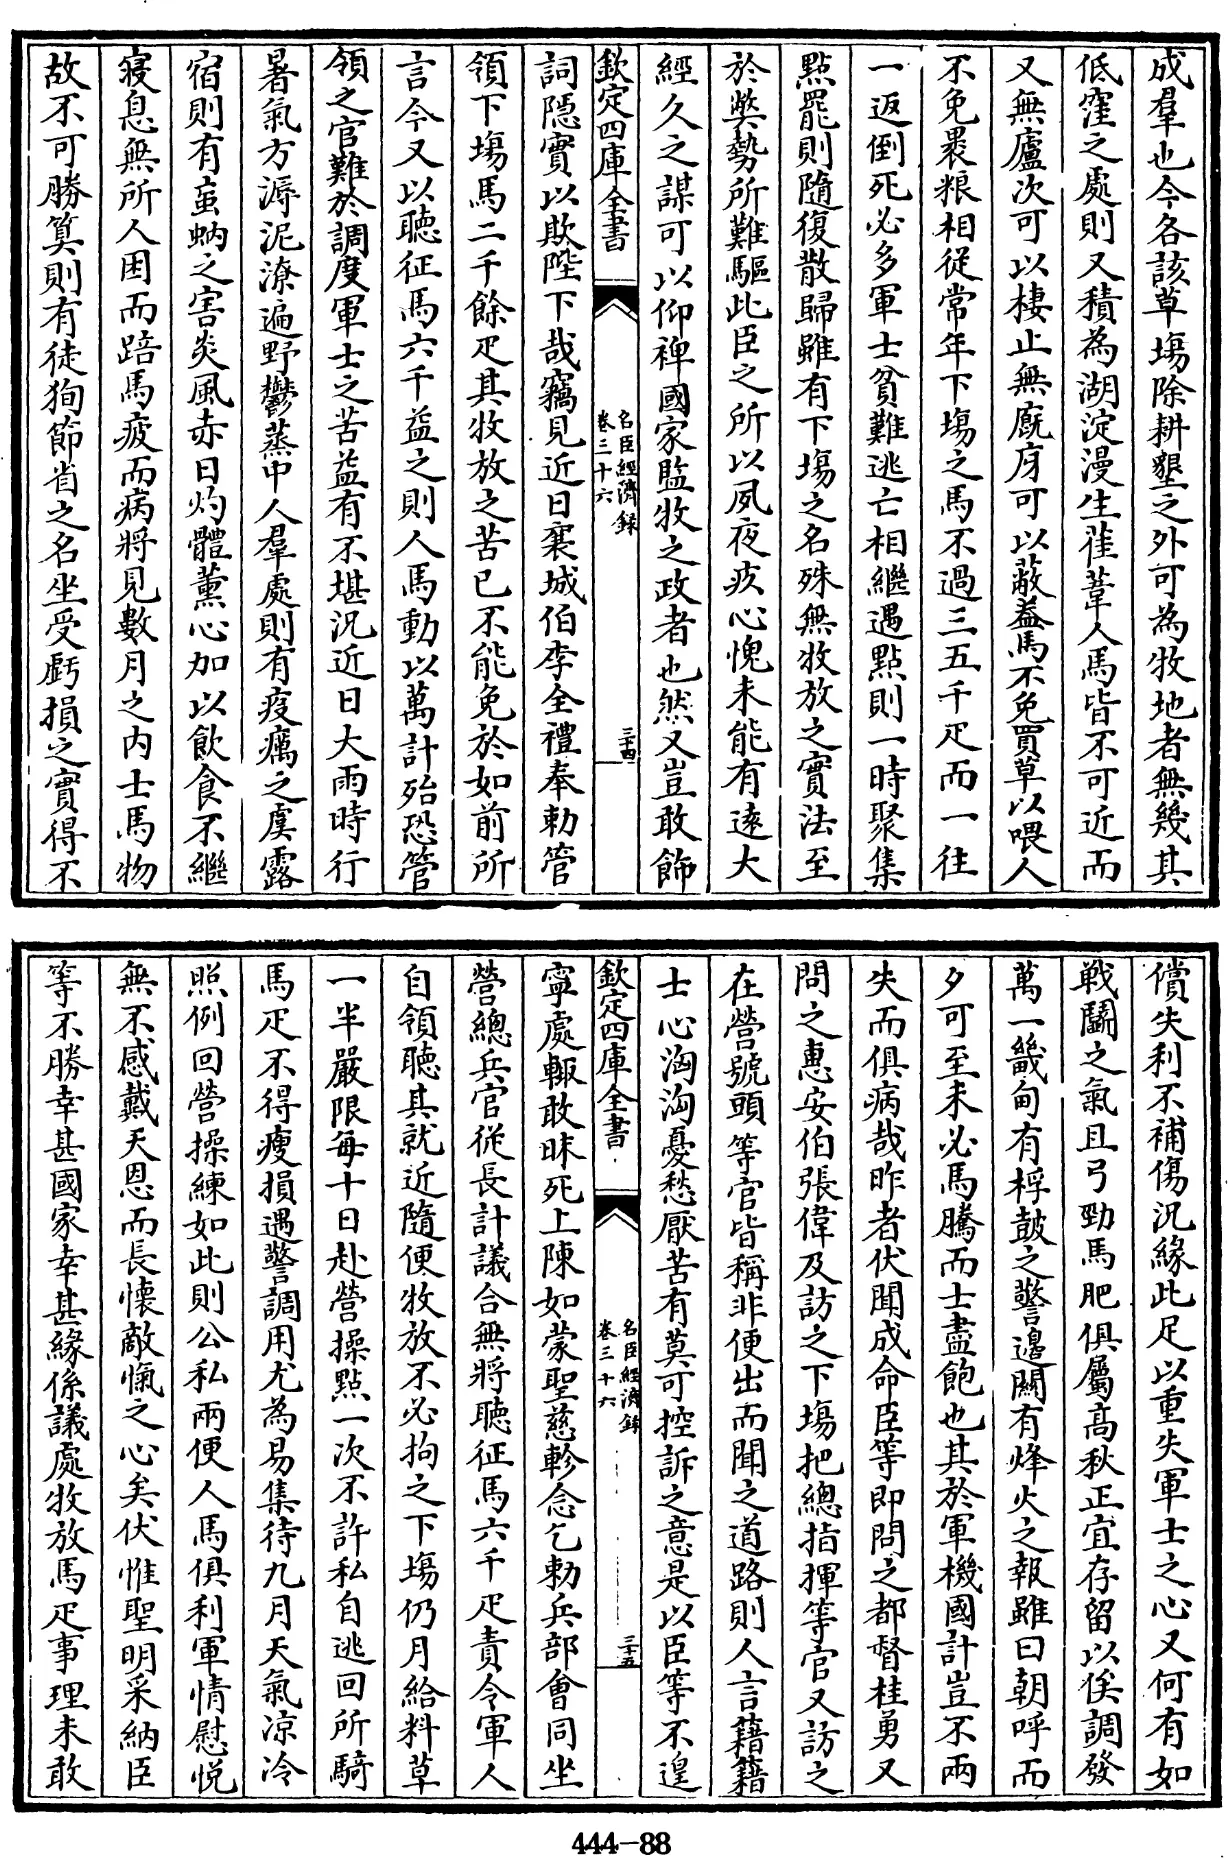 成羣也今各該草塲除耕墾之外可為牧地者無幾其
低窪之處則又積為湖淀漫生萑葦人馬皆不可近而
又無廬次可以棲止無廐庌可以蔽益馬不免買草以喂人
不免褁粮相從常年下塲之馬不過三五千疋而一往
一返倒死必多軍士貧難逃亡相繼遇點則一時聚集
點罷則隨復散歸雖有下塲之名殊無牧放之實法至
於獘勢所難驅此臣之所以夙夜疚心愧未能有遠大
經久之謀可以仰裨國家監牧之政者也然又豈敢飾
欽定四庫全書
名臣經濟錄
卷三十六
三十四
詞隱實以欺陛下哉竊見近日襄城伯李全禮奉勅管
領下塲馬二千餘疋其牧放之苦已不能免於如前所
言今又以聽征馬六千益之則人馬動以萬計殆恐管
領之官難於調度軍士之苦益有不堪况近日大雨時行
暑氣方溽泥潦遍野鬱蒸中人羣處則有疫癘之虞露
宿則有䖟蚋之害炎風赤日灼體薰心加以飲食不繼
寢息無所人困而踣馬疲而病將見數月之內士馬物
故不可勝筭則有徒狥節省之名坐受虧損之實得不
償失利不補傷况緣此足以重失軍士之心又何有如
戰鬭之氣且弓勁馬肥俱屬高秋正宜存留以俟調發
萬一畿甸有桴鼓之警邊關有烽火之報雖曰朝呼而
夕可至未必馬騰而士盡飽也其於軍機國計豈不兩
失而俱病哉昨者伏聞成命臣等即問之都督桂勇又
問之惠安伯張偉及訪之下塲把總指揮等官又訪之
在營號頭等官皆稱非便出而聞之道路則人言籍籍
士心洶洶憂愁厭苦有莫可控訴之意是以臣等不遑
欽定四庫全書
名臣經濟錄
卷三十六
三十五
寧處輙敢昧死上陳如蒙聖慈軫念乞勅兵部會同坐
營總兵官從長計議合無將聽征馬六千疋責令軍人
自領聽其就近隨便牧放不必拘之下塲仍月給料草
一半嚴限每十日赴營操點一次不許私自逃回所騎
馬疋不得瘦損遇警調用尤為易集待九月天氣凉冷
照例回營操練如此則公私兩便人馬俱利軍情慰悅
無不感戴天恩而長懷敵愾之心矣伏惟聖明采納臣
等不勝幸甚國家幸甚緣係議處牧放馬疋事理未敢
444-88